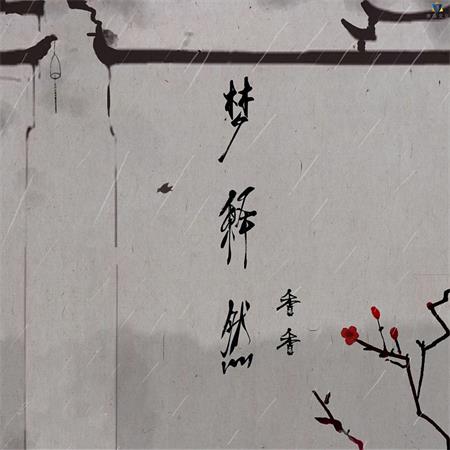 梦
解
然
香香